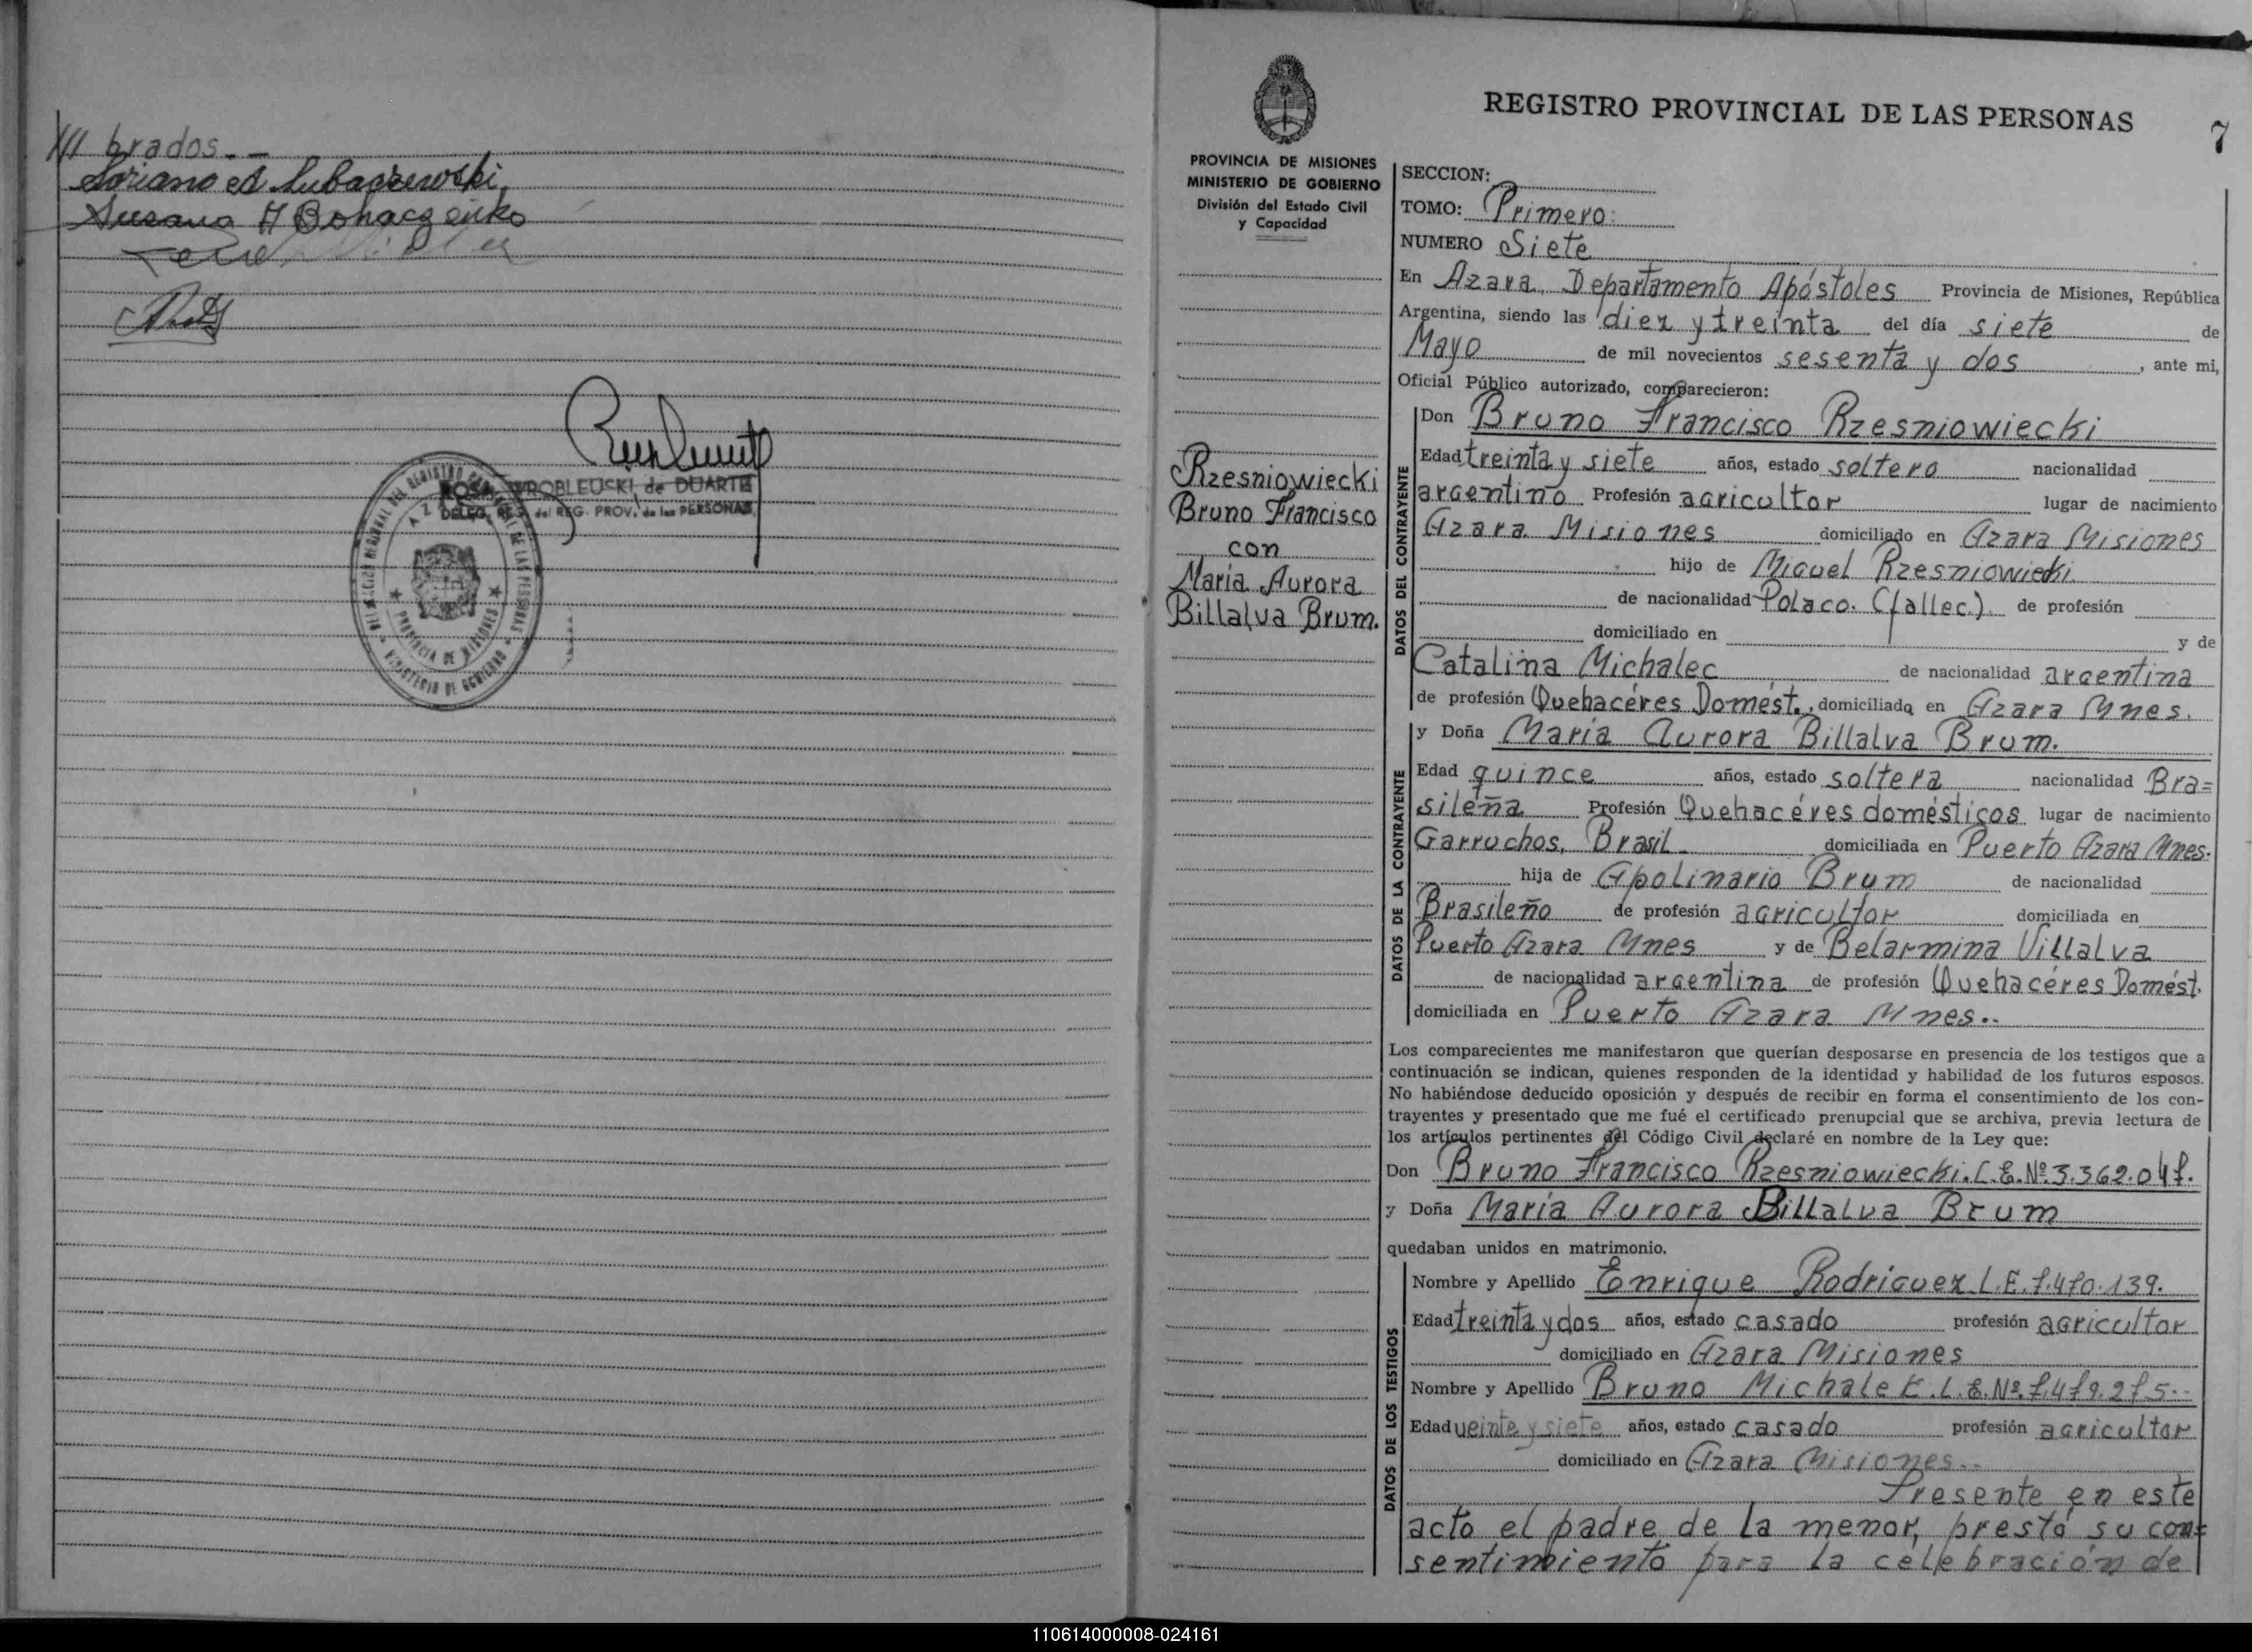 /// brados.--
Soriano A Lubaczewski
Susana H Bohaczenko
ROSA WROBLEUSKI de DUARTE
DELEG. REG. del REG. PROV. de las PERSONAS
DELEGACION REGIONAL DEL REGISTRO PROVINCIAL DE LAS PERSONAS
AZARA
PROVINCIA DE MISIONES
MINISTERIO DE GOBIERNO
REGISTRO PROVINCIAL DE LAS PERSONAS
7
PROVINCIA DE MISIONES
MINISTERIO DE GOBIERNO
División del Estado Civil
y Capacidad
Rzesniowiecki
Bruno Francisco
con
María Aurora
Billalva Brum.
SECCION:
TOMO: Primero:
NUMERO Siete
En Azara, Departamento Apóstoles Provincia de Misiones, República
Argentina, siendo las diez y treinta del día siete de
Mayo de mil novecientos sesenta y dos, ante mi,
Oficial Público autorizado, comparecieron:
DATOS DEL CONTRAYENTE
Don Bruno Francisco Rzesniowiecki
Edad treinta y siete años, estado soltero nacionalidad
argentino Profesión agricultor lugar de nacimiento
Azara Misiones domiciliado en Azara Misiones
hijo de Miguel Rzesniowiecki
de nacionalidad Polaco. (fallec.) de profesión
domiciliado en y de
Catalina Michalec de nacionalidad argentina
de profesión Quehacéres Domést., domiciliada en Azara Mnes.
DATOS DE LA CONTRAYENTE
y Doña María Aurora Billalva Brum.
Edad quince años, estado soltera nacionalidad Bra=
sileña Profesión Quehacéres domésticos lugar de nacimiento
Garruchos, Brasil domiciliada en Puerto Azara Mnes.
hija de Apolinario Brum de nacionalidad
Brasileño de profesión agricultor domiciliada en
Puerto Azara Mnes y de Belarmina Villalva
de nacionalidad argentina de profesión Quehacéres Domést.
domiciliada en Puerto Azara Mnes..
Los comparecientes me manifestaron que querían desposarse en presencia de los testigos que a
continuación se indican, quienes responden de la identidad y habilidad de los futuros esposos.
No habiéndose deducido oposición y después de recibir en forma el consentimiento de los con-
trayentes y presentado que me fué el certificado prenupcial que se archiva, previa lectura de
los artículos pertinentes del Código Civil declaré en nombre de la Ley que:
Don Bruno Francisco Rzesniowiecki. L.E. Nº 3.362.047.
y Doña María Aurora Billalva Brum
quedaban unidos en matrimonio.
DATOS DE LOS TESTIGOS
Nombre y Apellido Enrique Rodriguez L.E. 7.470.139.
Edad treinta y dos años, estado casado profesión agricultor
domiciliado en Azara Misiones
Nombre y Apellido Bruno Michalek. L.E. Nº. 7.479.275..
Edad veinte y siete años, estado casado profesión agricultor
domiciliado en Azara Misiones..
Presente en este
acto el padre de la menor, prestó su con=
sentimiento para la celebración de
110614000008-024161